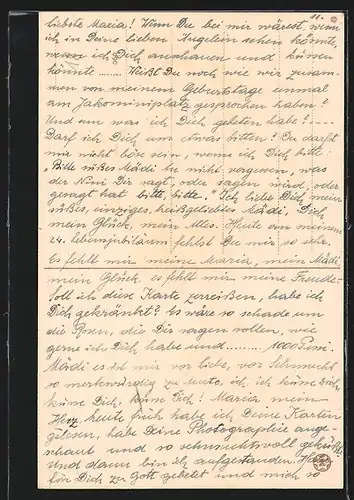 11.
liebste Maria! Wenn Du bei mir wärest, wenn
ich in Deine lieben Äugelein sehen könnte,
wenn ich Dich anschauen und küssen
könnte ........ Weißt Du noch wie wir zusam-
men von meinem Geburtstage einmal
am Jakominiplatz gesprochen haben?
Und um was ich Dich gebeten habe? ----
Darf ich Dich um etwas bitten? Du darfst
mir nicht böse sein, wenn ich Dich bitte.
"Bitte süßes Mädi be mir vergessen, was
der Nini Dir sagt, oder sagen wird, oder
gesagt hat bitte, bitte." Ich liebe Dich, mein
süßes, einziges, heißgeliebtes Mädi, Dich
mein Glück, mein Alles. Heute an meinem
24. Lebensjubiläum fehlst Du mir so sehr.
Es fehlt mir meine Maria, mein Mädi
mein Glück, es fehlt mir meine Freude.
Soll ich diese Karte zerreißen, habe ich
Dich gekränkt? Es wäre so schade um
die Rosen, die Dir sagen sollen, wie
gerne ich Dich habe und ......... 1000 Pussi.
Mädi es ist mir vor Liebe, vor Sehnsucht
so merkwürdig zu Mute, ich, ich küsse Dich,
küsse Dich, küsse Dich! Maria mein
Herz, heute früh habe ich Deine Karten
gelesen, habe Deine Photographie ange-
schaut und so sehnsuchtsvoll geküßt.
Und dann bin ich aufgestanden. Habe
für Dich zu Gott gebetet und mich so